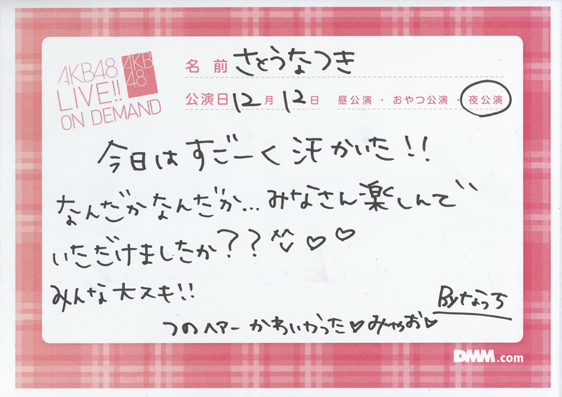 AKB48
LIVE!!
ON DEMAND
AKB
48
名前 さとうなつき
公演日 12月12日 昼公演・おやつ公演・夜公演
今日はすごーく汗かいた!!
なんだかなんだか...みなさん楽しんで
いただけましたか??^^♡♡
みんな大スキ!!
Byなっち
つのヘアーかわいかった♡みゃお♡
DMM.com